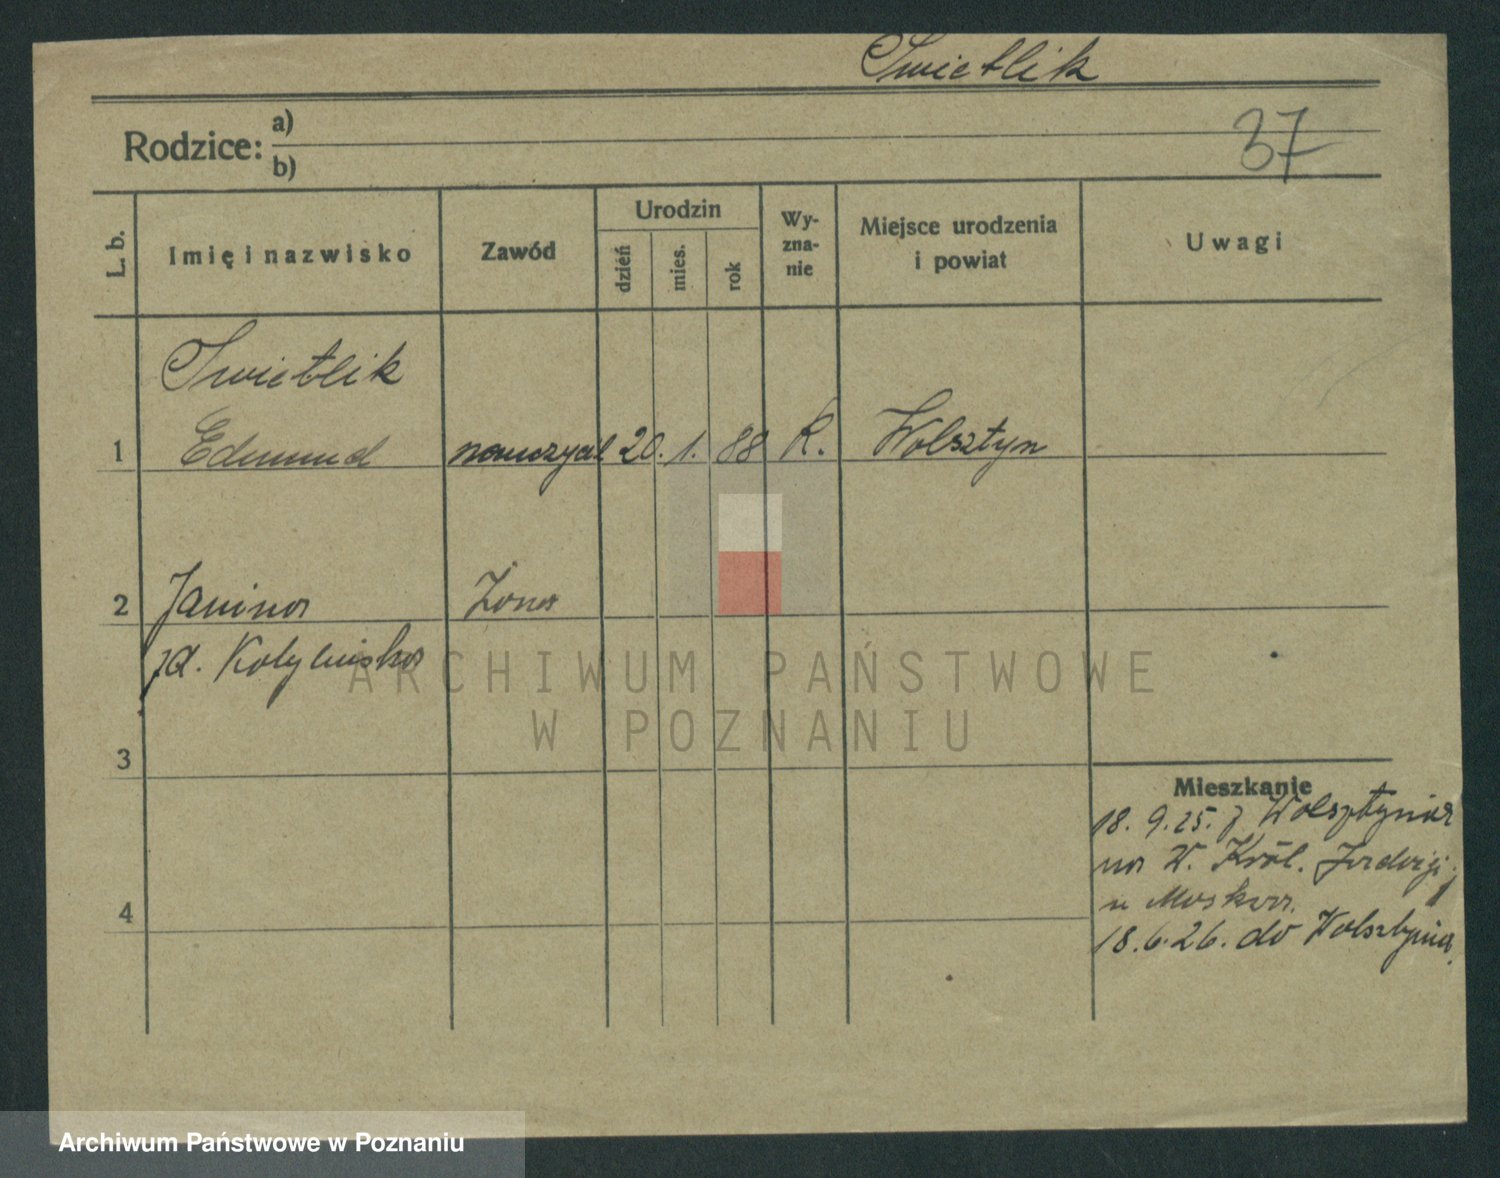 Swietlik
37
Rodzice: a)
b)
L. b.
Imię i nazwisko
Zawód
Urodzin
dzień
mies.
rok
Wy-
zna-
nie
Miejsce urodzenia
i powiat
Uwagi
Swietlik
1 Edmund nauczyciel 20. 1. 88 K. Wolsztyn
2 Janina Żona
zd.
3
4
Mieszkanie
18. 9. 25. z Wolsztyna
na W. Król. Jadwigi
u
18. 6. 26. do Wolsztyna.
ARCHIWUM PAŃSTWOWE
W POZNANIU
Archiwum Państwowe w Poznaniu